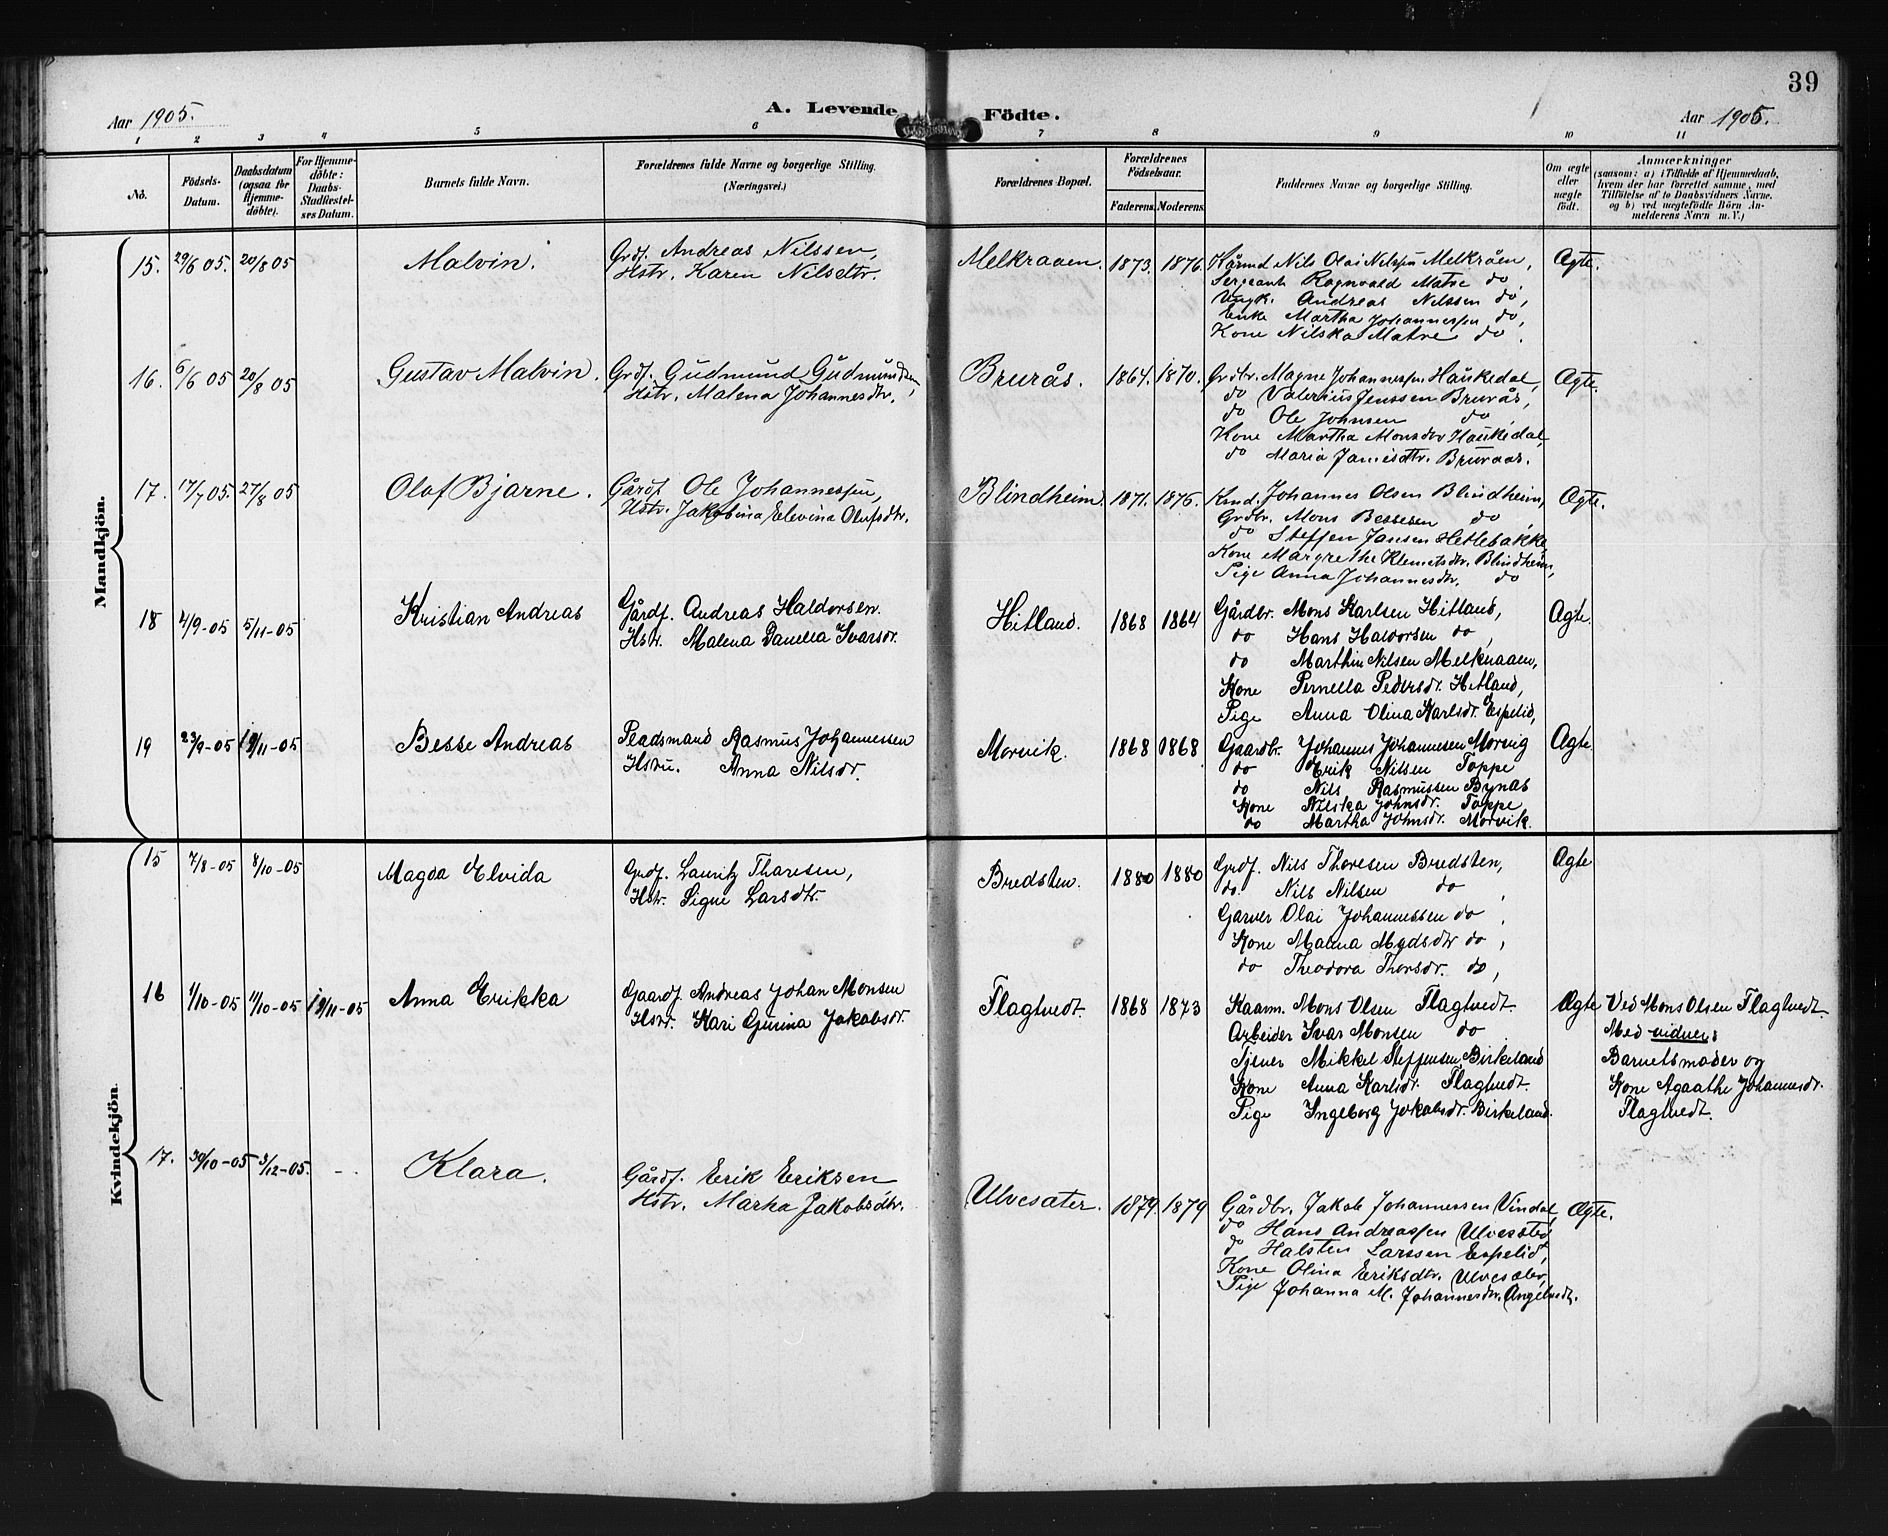 39
Aar 1905. A. Levende Födte. Aar 1905.
1 2 3 4 5 6 7 8 9 10 11
No. Födsels-Datum. Daabsdatum (ogsaa for Hjemmedöbte). For Hjemmedöbte: Daabs-Stadfæstelses Datum. Barnets fulde Navn. Forældrenes fulde Navne og borgerlige Stilling. (Næringsvei.) Forældrenes Bopæl. Forældrenes Födselsaar. Faderens. Moderens. Faddernes Navne og borgerlige Stilling. Om ægte eller uægte födt. Anmærkninger (saasom: a) i Tilfælde af Hjemmedaab, hvem der har forrettet samme, med Tilföielse af to Daabsvidners Navne, og b) ved uægtefödte Börn Anmelderens Navn m. V.)
Mandkjön.
15. 29/6 05. 20/8 05 Malvin. Grdf. Andreas Nilssen, Melkraaen. 1873. 1876. Nils Olai Nilssen Melkråen, Ægte.
Hstr. Karen Nilsdtr. Sergeant Ragnvald Matre do.
Ungk. Andreas Nilssen do,
Enke Martha Johannessen do,
Kone Nilska Matre do.
16. 6/6 05 20/8 05 Gustav Malvin. Grdf. Gudmund Gudmundsen, Brurås. 1864. 1870. Grdbr. Magne Johannessen Haukedal, Ægte.
Hstr. Malena Johannesdtr. do Valerius Jenssen Brurås,
do Ole Johnsen do,
Kone Martha Monsdtr Haukedal,
do Maria Jansdtr. Bruraas.
17. 17/7 05. 27/8 05 Olaf Bjarne. Gårdf Ole Johannessen, Blindheim. 1871. 1875. Kmd. Johannes Olsen Blindheim, Ægte.
Hstr. Jakobina Elevina Olufsdtr. Grdbr. Mons Bessesen do,
do Steffen Jansen Hetlebakke
Kone Margrethe Klemetsdtr. Blindheim,
Pige Anna Johannesdtr. do
18 4/9-05 5/11-05 Kristian Andreas Gårdf. Andreas Haldorsen. Hitland. 1868 1864 Gårdbr. Mons Karlsen Hitland, Ægte.
Hstr. Malena Danella Ivarsdr. do Hans Haldorsen do,
do Marthin Nilsen Melkraaen,
Kone Pernella Pedersdr. Hitland,
Pige Anna Olina Karlsdr. Espelid,
19 23/9-05 19/11-05 Besse Andreas Rasmus Johannessen Morvik. 1868 1868 Gaardbr. Johannes Johannesen Morvig Ægte.
Hstru. Anna Nilsdr. do Erik Nilsen Toppe
do Nils Rasmussen Bynæs
Kone Nilska Johnsdr. Toppe
do Martha Johnsdr. Morvik.
Kvindekjön.
15 7/8-05 8/10-05 Magda Elvida Grdf. Lauritz Thoresen, Bredsten. 1880 1880 Grdf. Nils Thoresen Bredsten, Ægte
Hstr. Signe Larsdtr. do. Nils Nilsen do,
Garver Olai Johannessen do,
Kone Madsdtr do,
do Theodora Thorsdr. do,
16 1/10-05 11/10-05 19/11-05 Anna Erikka Gaardf. Andreas Johan Monsen Flagtvedt. 1868 1873 Kaarm. Mons Olsen Flagtvedt. Ægte Ved Mons Olsen Flagtvedt.
Hstr. Kari Gurina Jakobsdr. Arbeider Ivar Monsen do Med vidner:
Tjener Mikkel Steffensen Birkeland Barnets moder og
Kone Anna Karlsdr. Flagtvedt. Kone Agaathe Johannesdr.
Pige Ingeborg Jokobsdr. Birkeland. Flagtvedt.
17. 30/10-05 3/12-05. -- Klara. Gårdf. Erik Eriksen Ulvesæter. 1879. 1879 Gårdbr. Jakob Johannessen Vindal, Ægte.
Hstr. Marha Jakobsdtr. do Hans Andreassen Ulvesæter,
do Halsten Larssen Espelid,
Kone Olina Eriksdtr. Ulvesæter,
Pige Johanna M. Johannesdtr. Angeltvedt.